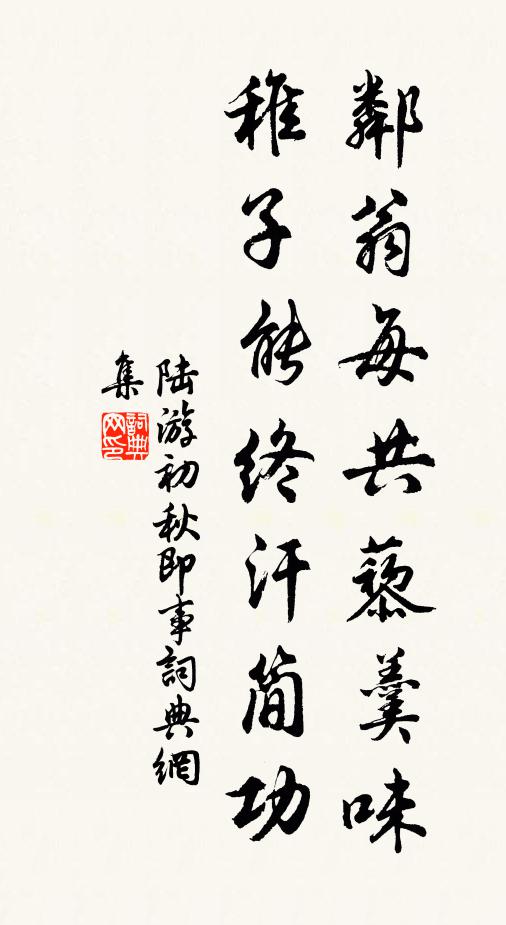 鄰翁每共藜羹味
稚子能終汗簡功
陸游初秋即事詞典網
集
詞典網印